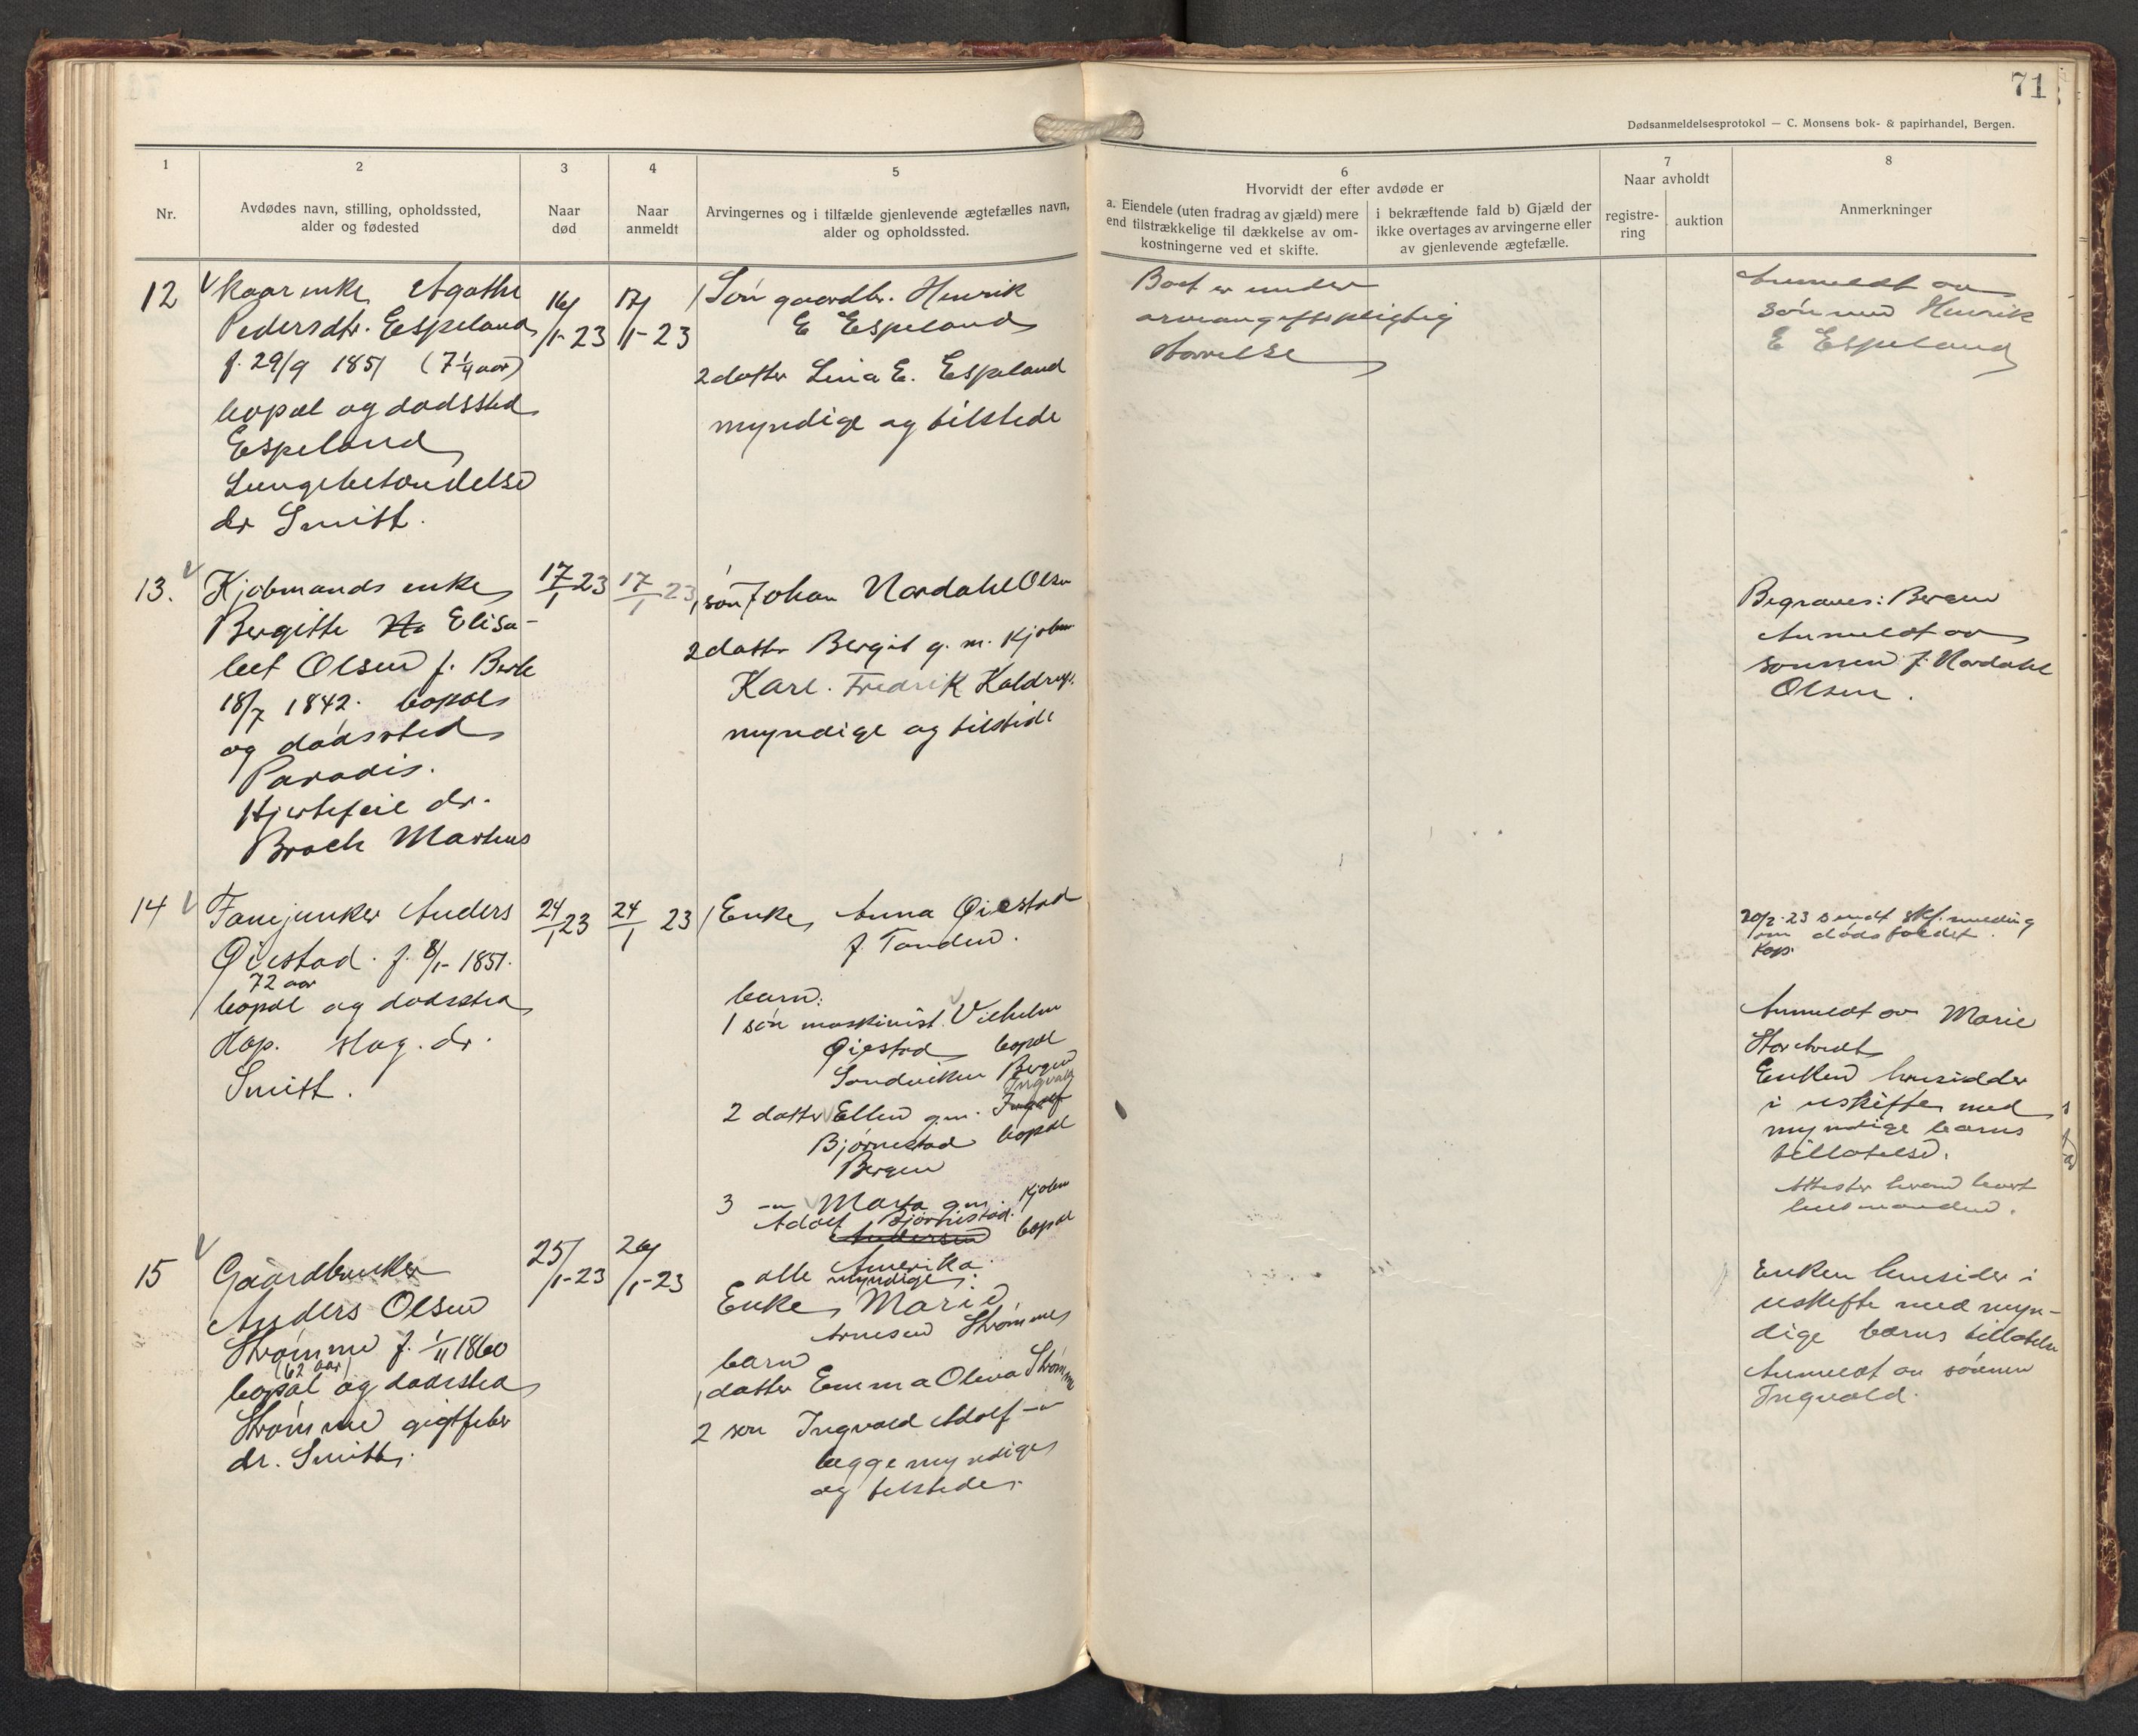 71
Dødsanmeldelsesprotokol — C. Monsens bok- & papirhandel, Bergen.
1
Nr.
2
Avdødes navn, stilling, opholdssted,
alder og fødested
3
Naar
død
4
Naar
anmeldt
5
Arvingernes og i tilfælde gjenlevende ægtefælles navn,
alder og opholdssted.
6
Hvorvidt der efter avdøde er
a. Eiendele (uten fradrag av gjæld) mere
end tilstrækkelige til dækkelse av om-
kostningerne ved et skifte.
i bekræftende fald b) Gjæld der
ikke overtages av arvingerne eller
av gjenlevende ægtefælle.
7
Naar avholdt
registre-
ring
auktion
8
Anmerkninger
12
Kaarenke Agathe
Pedersdtr. Espeland
f. 29/9 1851 (71 aar)
bopæl og dødssted
Espeland
Lungebetændelse
dr Smitt.
16/1-23
17/1-23
1 Søn gaardbr. Henrik
E Espeland
2 datter Lina E. Espeland
myndige og tilstede
Boet er under
arveavgiftspligtig
størrelse
Anmeldt av
sønnen Henrik
E Espeland
13.
Kjøbmands enke
Bergitte Elisa-
bet Olsen f. Berle
18/7 1842. bopæl
og dødssted
Paradis.
Hjertefeil dr.
Broch Martens
17/1 23
17/1 23
1 søn Johan Nordahl Olsen
2 datter Bergit g. m. Kjøbm
Karl. Fredrik
myndige og tilstede
Begraves: Bergen
Anmeldt av
sønnen J. Nordahl
Olsen.
14
Fanejunker Anders
Øiestad. f. 8/1- 1851.
72 aar
bopæl og dødssted
Hop. slag. dr.
Smitt.
24/1 23
24/1 23
1 Enke, Anna Øiestad
f. Tanden.
barn:
1 søn maskinist. Vilhelm
Øiestad bopæl
Sandviken Bergen
Ingvald
2 datter Ellen gm. Ingolf
Bjørnestad bopæl
Bergen
3 -"- Marta gm. Kjøbm
Adolf Bjørnestad.
Andersen bopæl
Amerika.
alle myndige.
20/2-23 sendt skf. melding
om dødsfaldet.
Kap.
Anmeldt av Marie
Storetvedt
Enken hensidder
i uskifte med
myndige barns
tillatelse.
15
Gaardbruker
Anders Olsen
Strømme f. 1/11 1860
(62 aar)
bopæl og dødssted
Strømme gigtfeber
dr. Smitt.
25/1-23
26/1-23
Enke, Marie
Arnesen Strømme
barn
1 datter Emma Oliva Strømme
2 søn Ingvald Adolf -"-
begge myndige
og tilstede.
Enken hensider i
uskifte med myn-
dige barns tillatelse
Anmeldt av sønnen
Ingvald.